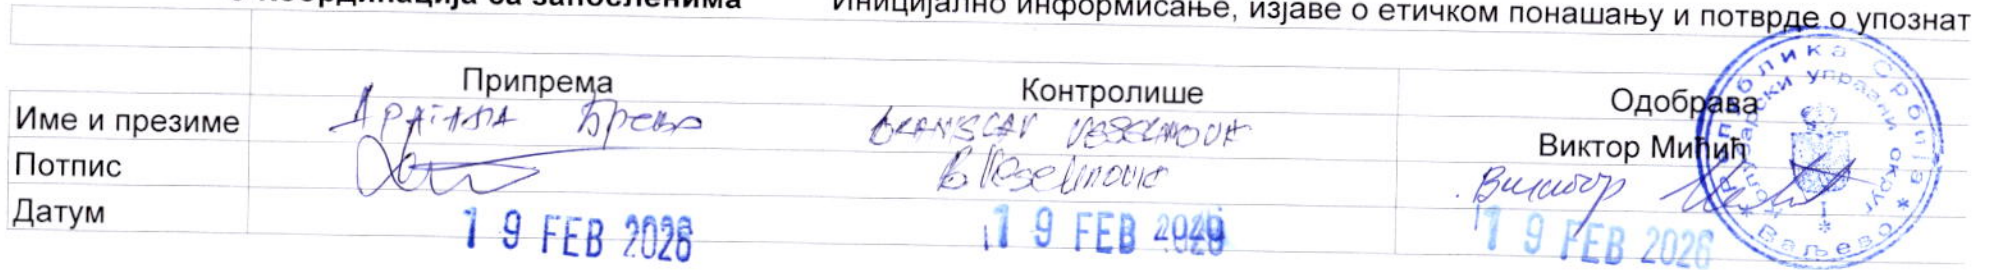 Координација са запосленима Иницијално информисање, изјаве о етичком понашању и потврде о упознат
Припрема Контролише Одобрава
Име и презиме Драгана BRANISLAV Виктор Мићић
Потпис B Veselinović Виктор
Датум 19 FEB 2026 19 FEB 19 FEB 2026
Република Србија
Колубарски управни округ
Ваљево